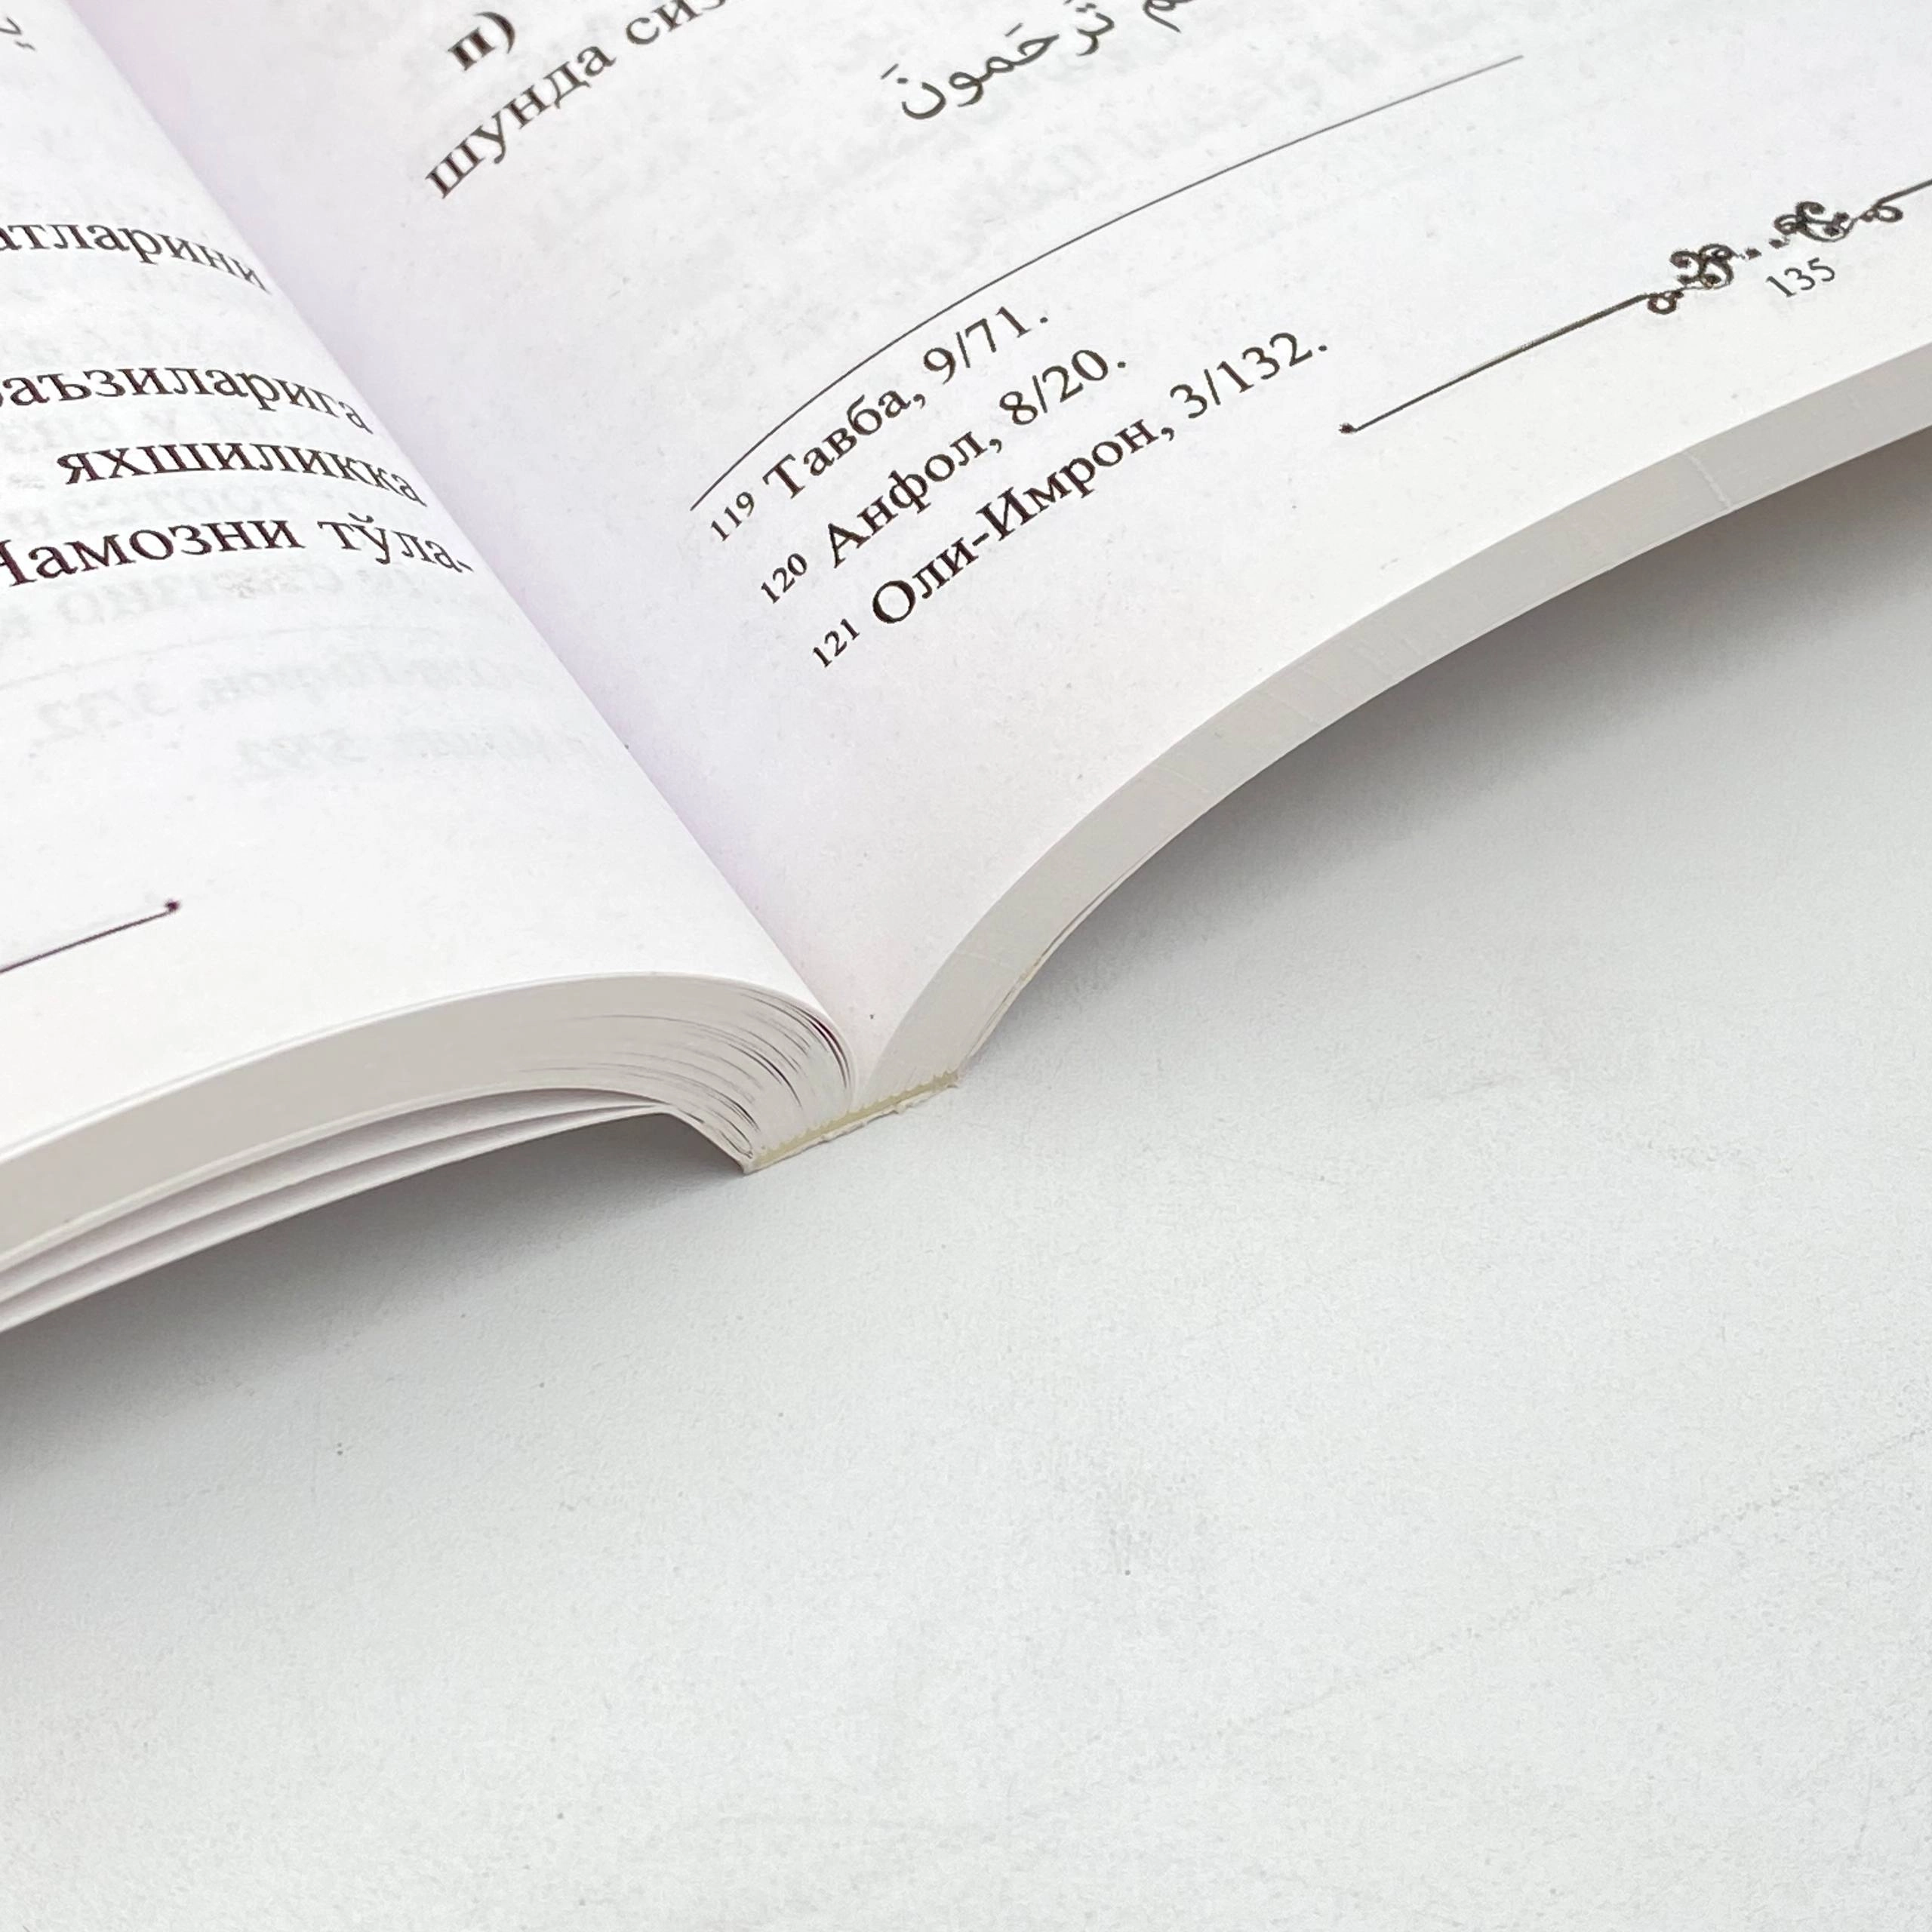 атларини
баъзиларига
яхшиликка
Намозни тўла-
п)
шунда сиз
تُرْحَمُونَ
119 Тавба, 9/71.
120 Анфол, 8/20.
121 Оли-Имрон, 3/132.
135